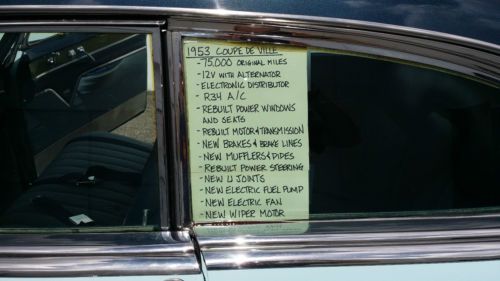 1953 COUPE DE VILLE
-75,000 ORIGINAL MILES
-12V WITH ALTERNATOR
-ELECTRONIC DISTRIBUTOR
- R34 A/C
-REBUILT POWER WINDOWS
AND SEATS
-REBUILT MOTOR & TRANSMISSION
-NEW BRAKES & BRAKE LINES
-NEW MUFFLERS & PIPES
-REBUILT POWER STEERING
-NEW U JOINTS
-NEW ELECTRIC FUEL PUMP
-NEW ELECTRIC FAN
-NEW WIPER MOTOR